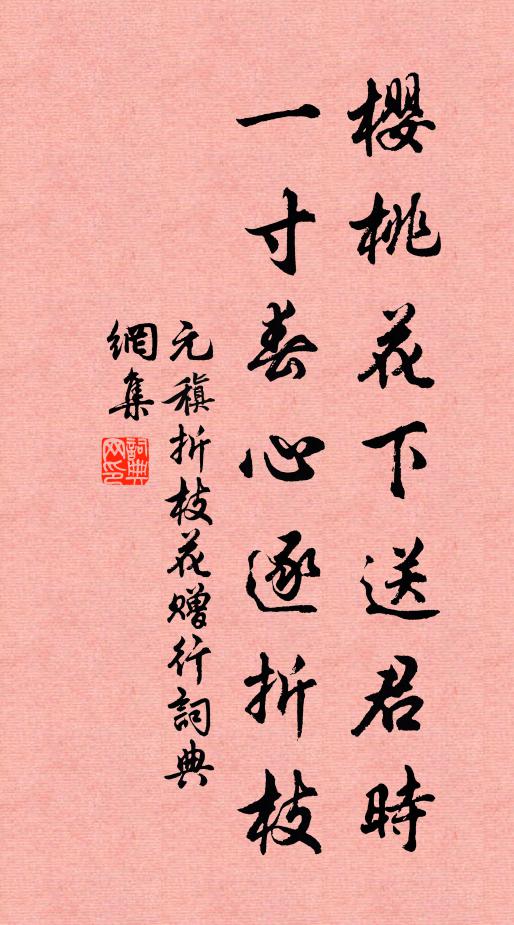 櫻桃花下送君時
一寸春心逐折枝
元稹折枝花贈行詞典
網集
詞典
网印